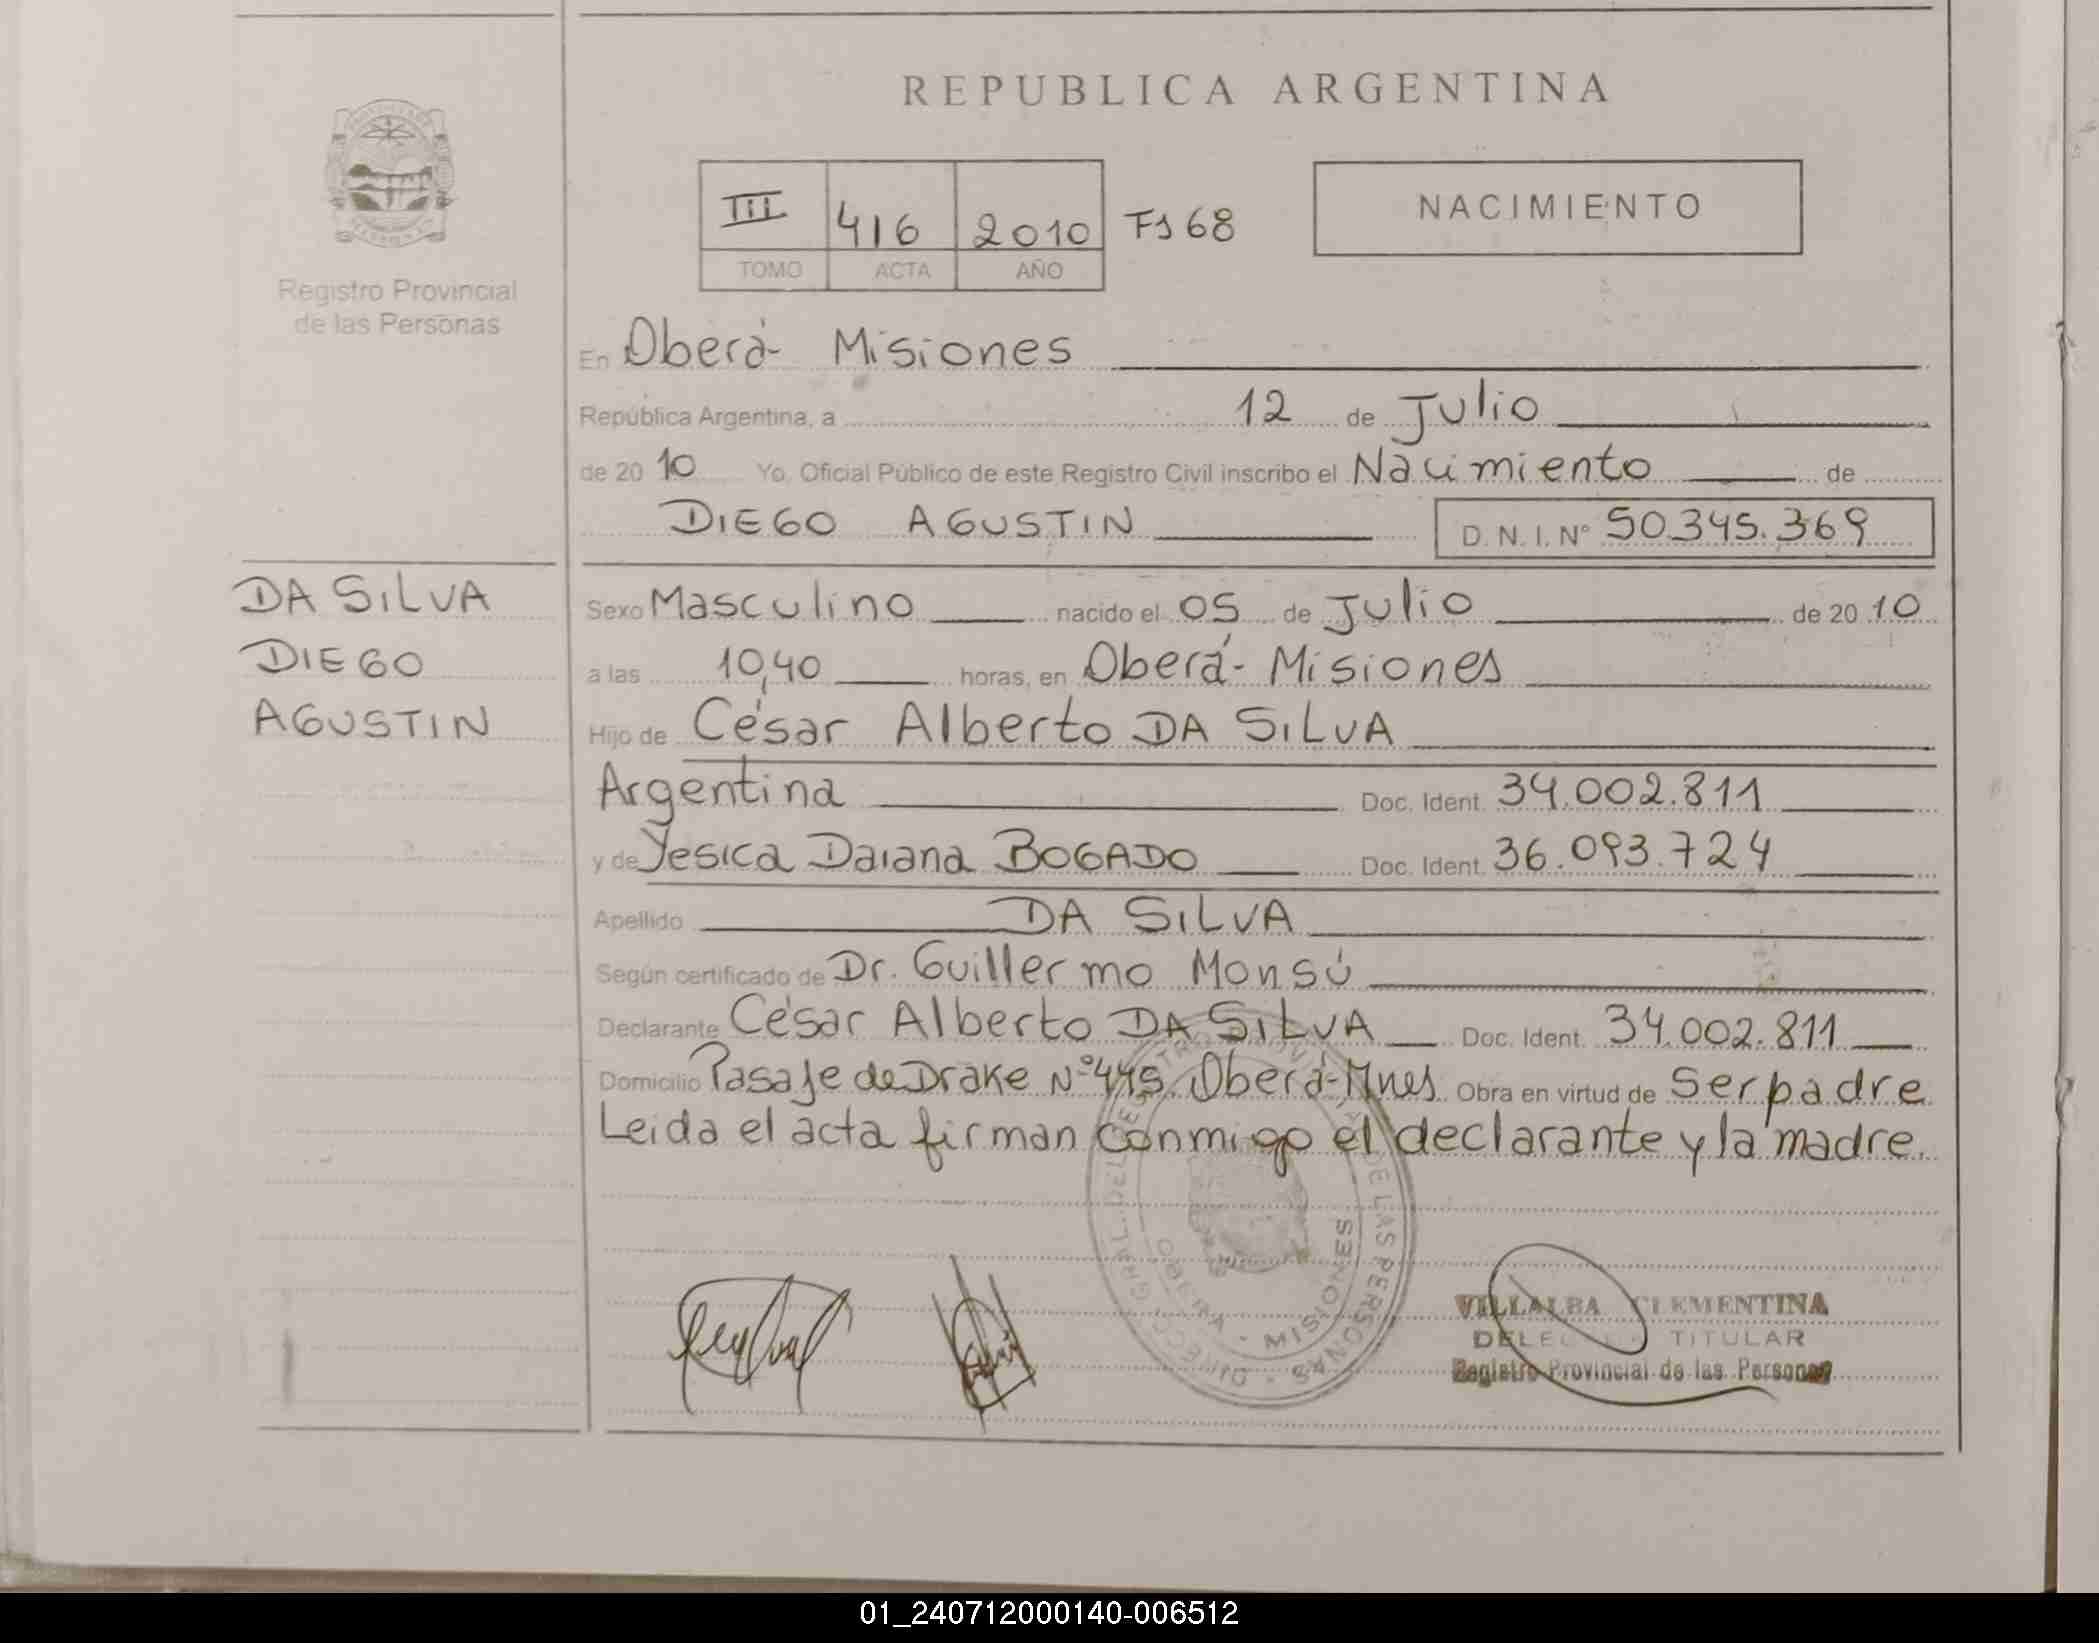 REPUBLICA ARGENTINA
Registro Provincial
de las Personas
III 416 2010 Fs 68
TOMO ACTA AÑO
NACIMIENTO
En Oberá - Misiones
República Argentina, a 12 de Julio
de 20 10 Yo, Oficial Público de este Registro Civil inscribo el Nacimiento de
DIEGO AGUSTIN D.N.I. Nº 50.345.369
DA SILVA
DIEGO
AGUSTIN
Sexo Masculino nacido el 05 de Julio de 20 10
a las 10,40 horas, en Oberá - Misiones
Hijo de César Alberto DA SILVA
Argentina Doc. Ident. 34.002.811
y de Yesica Daiana BOGADO Doc. Ident. 36.093.724
Apellido DA SILVA
Según certificado de Dr. Guillermo Monsú
Declarante César Alberto DA SILVA Doc. Ident. 34.002.811
Domicilio Pasaje de Drake Nº 445. Oberá - Mnes. Obra en virtud de Ser padre
Leida el acta firman conmigo el declarante y la madre.
OBERA - MISIONES
VILLALBA CLEMENTINA
TITULAR
Registro Provincial de las Personas
01_240712000140-006512